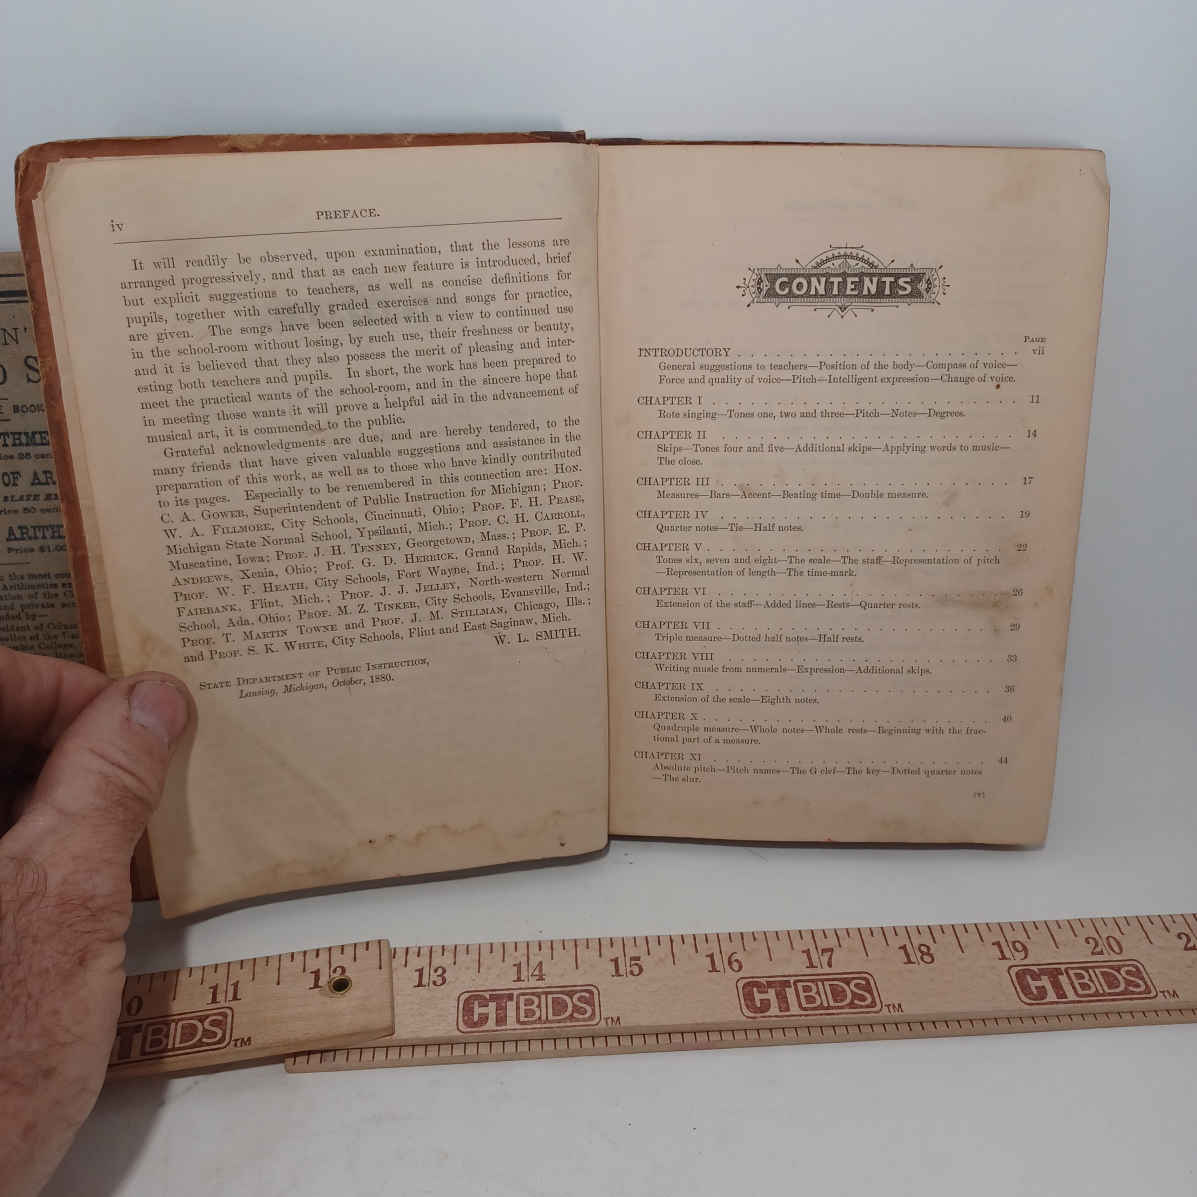 iv
PREFACE.
It will readily be observed, upon examination, that the lessons are
arranged progressively, and that as each new feature is introduced, brief
but explicit suggestions to teachers, as well as concise definitions for
pupils, together with carefully graded exercises and songs for practice,
are given. The songs have been selected with a view to continued use
in the school-room without losing, by such use, their freshness or beauty,
and it is believed that they also possess the merit of pleasing and inter-
esting both teachers and pupils. In short, the work has been prepared to
meet the practical wants of the school-room, and in the sincere hope that
in meeting those wants it will prove a helpful aid in the advancement of
musical art, it is commended to the public.
Grateful acknowledgments are due, and are hereby tendered, to the
many friends that have given valuable suggestions and assistance in the
preparation of this work, as well as to those who have kindly contributed
to its pages. Especially to be remembered in this connection are: HON.
C. A. GOWER, Superintendent of Public Instruction for Michigan; PROF.
W. A. FILLMORE, City Schools, Cincinnati, Ohio; PROF. F. H. PEASE,
Michigan State Normal School, Ypsilanti, Mich.; PROF. C. H. CARROLL,
Muscatine, Iowa; PROF. J. H. TENNEY, Georgetown, Mass.; PROF. E. P.
ANDREWS, Xenia, Ohio; Prof. G. D. HERRICK, Grand Rapids, Mich.;
PROF. W. F. HEATH, City Schools, Fort Wayne, Ind.; PROF. H. W.
FAIRBANK, Flint, Mich.; PROF. J. J. JELLEY, North-western Normal
School, Ada, Ohio; PROF. M. Z. TINKER, City Schools, Evansville, Ind.;
PROF. T. MARTIN TOWNE and PROF. J. M. STILLMAN, Chicago, Ills.;
and PROF. S. K. WHITE, City Schools, Flint and East Saginaw, Mich.
W. L. SMITH.
STATE DEPARTMENT OF PUBLIC INSTRUCTION,
Lansing, Michigan, October, 1880.
CONTENTS
PAGE
INTRODUCTORY . . . . . . . . . . . . . . . . . . . . vii
General suggestions to teachers—Position of the body—Compass of voice—
Force and quality of voice—Pitch—Intelligent expression—Change of voice.
CHAPTER I . . . . . . . . . . . . . . . . . . . . 11
Rote singing—Tones one, two and three—Pitch—Notes—Degrees.
CHAPTER II . . . . . . . . . . . . . . . . . . . . 14
Skips—Tones four and five—Additional skips—Applying words to music—
The close.
CHAPTER III . . . . . . . . . . . . . . . . . . . . 17
Measures—Bars—Accent—Beating time—Double measure.
CHAPTER IV . . . . . . . . . . . . . . . . . . . . 19
Quarter notes—Tie—Half notes.
CHAPTER V . . . . . . . . . . . . . . . . . . . . 22
Tones six, seven and eight—The scale—The staff—Representation of pitch
—Representation of length—The time-mark.
CHAPTER VI . . . . . . . . . . . . . . . . . . . . 26
Extension of the staff—Added lines—Rests—Quarter rests.
CHAPTER VII . . . . . . . . . . . . . . . . . . . . 29
Triple measure—Dotted half notes—Half rests.
CHAPTER VIII . . . . . . . . . . . . . . . . . . . . 33
Writing music from numerals—Expression—Additional skips.
CHAPTER IX . . . . . . . . . . . . . . . . . . . . 36
Extension of the scale—Eighth notes.
CHAPTER X . . . . . . . . . . . . . . . . . . . . 40
Quadruple measure—Whole notes—Whole rests—Beginning with the frac-
tional part of a measure.
CHAPTER XI . . . . . . . . . . . . . . . . . . . . 44
Absolute pitch—Pitch names—The G clef—The key—Dotted quarter notes
—The slur.
(v)
BOOK
OF AR
ARITH
Price $1.00
11 12 13 14 15 16 17 18 19 20
CTBIDS™
CTBIDS™
CTBIDS™
CTBIDS™